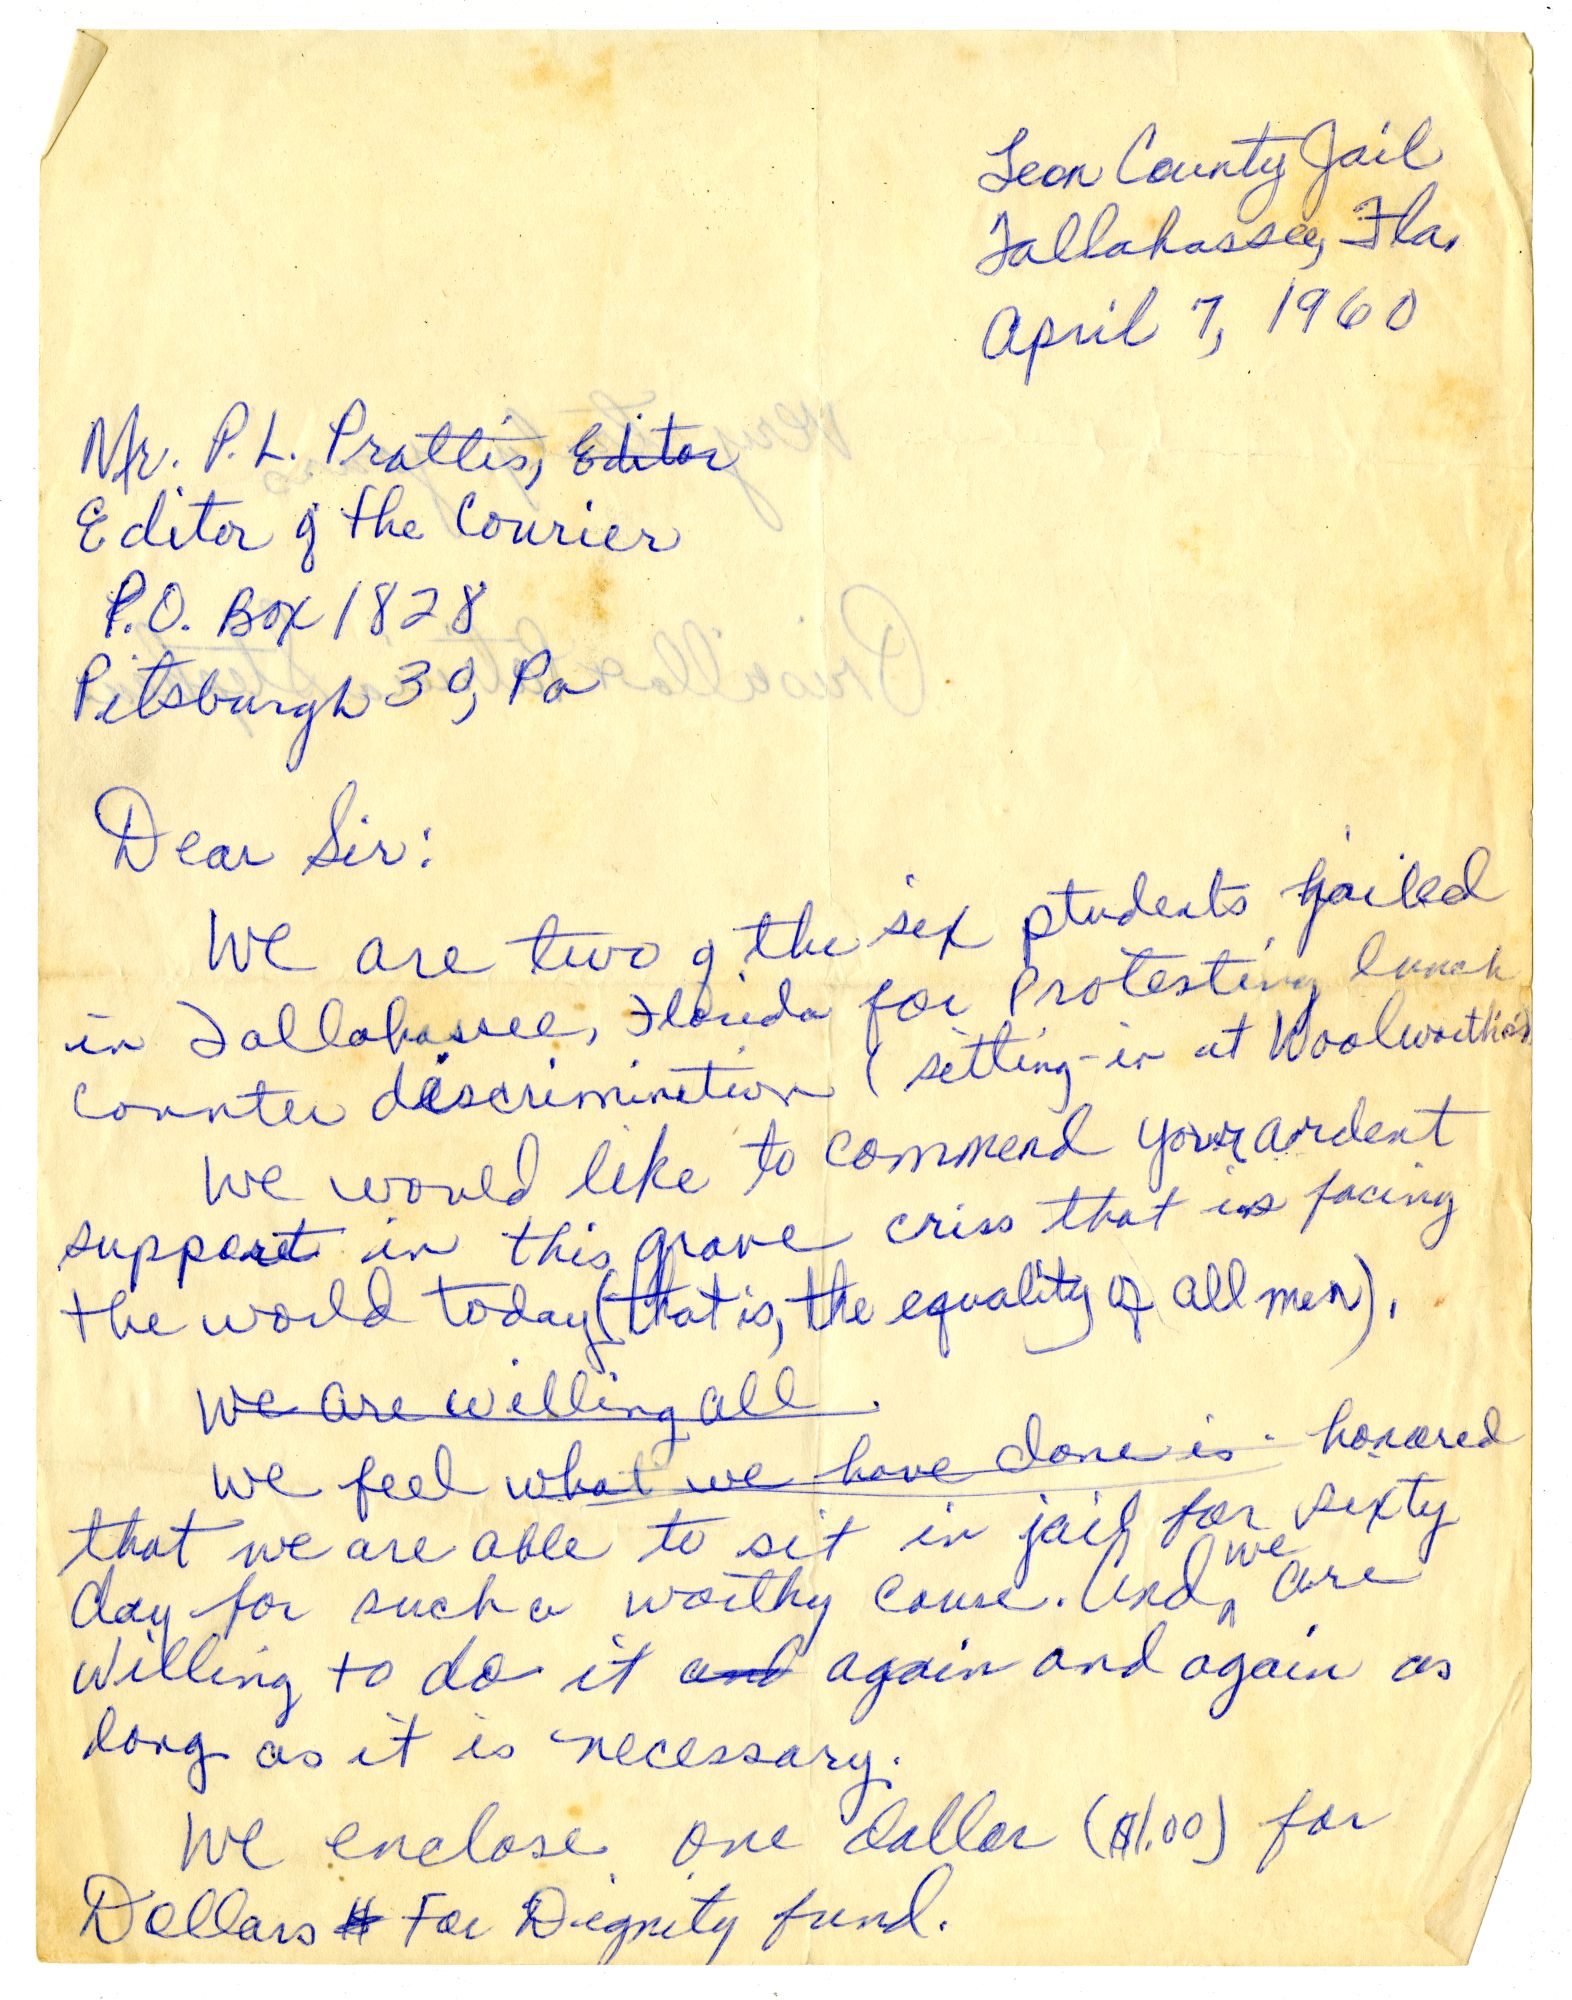 Leon County Jail
Tallahassee, Fla.
April 7, 1960
Mr. P.L. Prattis, Editor
Editor of the Courier
P.O. Box 1828
Pitsburgh 30, Pa
Dear Sir:
We are two of the six students jailed
in Tallahassee, Florida for Protesting lunch
counter discrimination (setting-in at Woolworth's).
We would like to commend your ardent
support in this grave criss that is facing
the world today (that is, the equality of all men).
We are willing all
We feel what we have done is honored
that we are able to sit in jail for sixty
day for such a worthy cause. And we are
willing to do it and again and again as
long as it is necessary.
We enclose one dollar ($1.00) for
Dollars For Dignity fund.
Very yours
Priscilla & Stephens